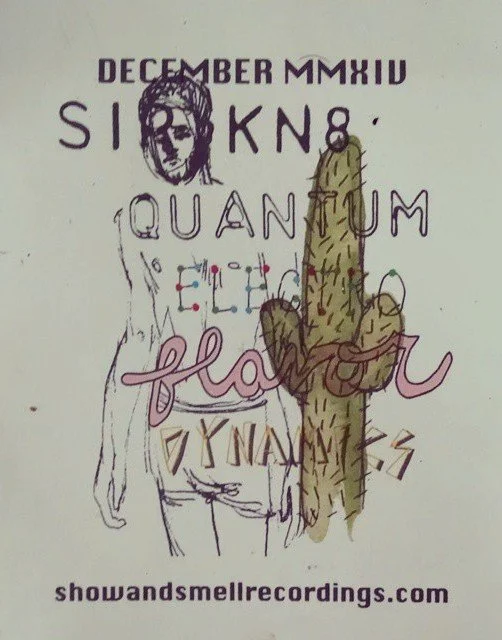 DECEMBER MMXIV
QUANTUM
ELECTRO
flavor
DYNAMICS
showandsmellrecordings.com